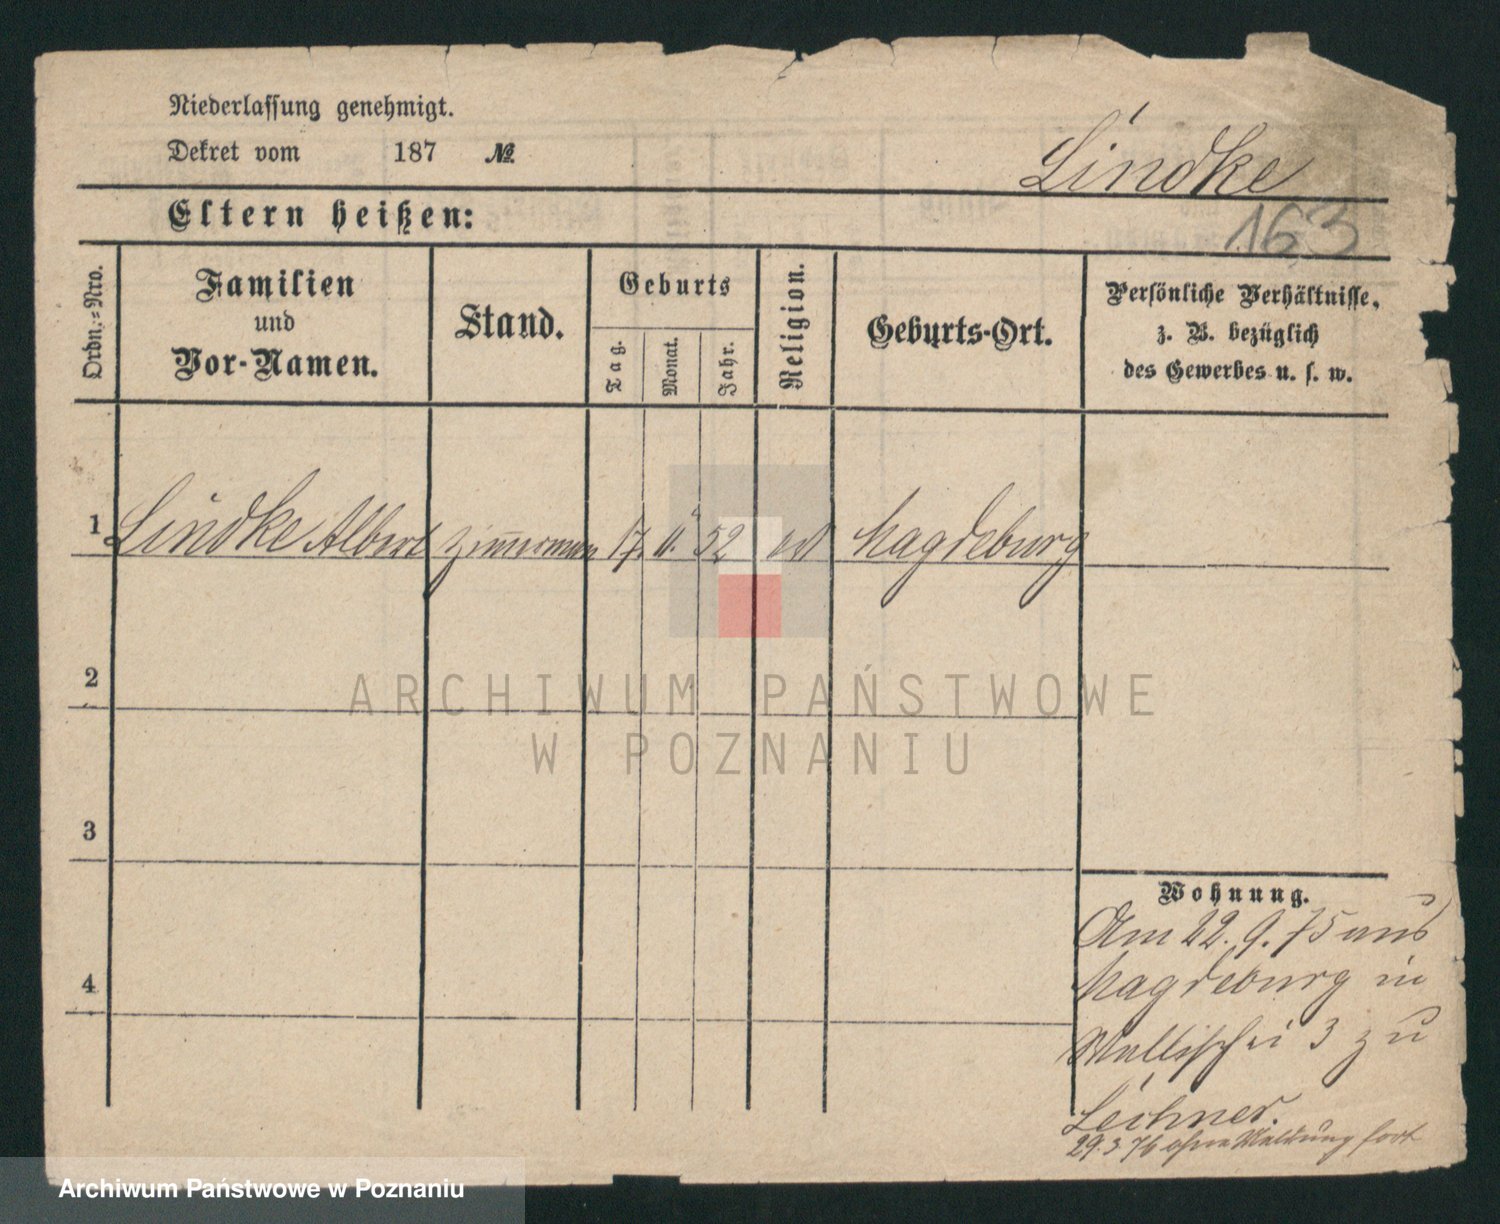 Niederlassung genehmigt.
Dekret vom 187 №
Lindke
163
Eltern heißen:
Ordn.=Nro.
Familien
und
Vor-Namen.
Stand.
Geburts
Tag.
Monat.
Jahr.
Religion.
Geburts-Ort.
Persönliche Verhältnisse,
z. B. bezüglich
des Gewerbes u. s. w.
1 Lindke Albert Zim̅ermann 17. 11. 52 ev Magdeburg
2
ARCHIWUM PAŃSTWOWE
W POZNANIU
3
Wohnung.
Am 22. 9. 75 aus
Magdeburg in
4
Wallischei 3 zu
Lechner.
29.3.76 ohne Meldung fort
Archiwum Państwowe w Poznaniu